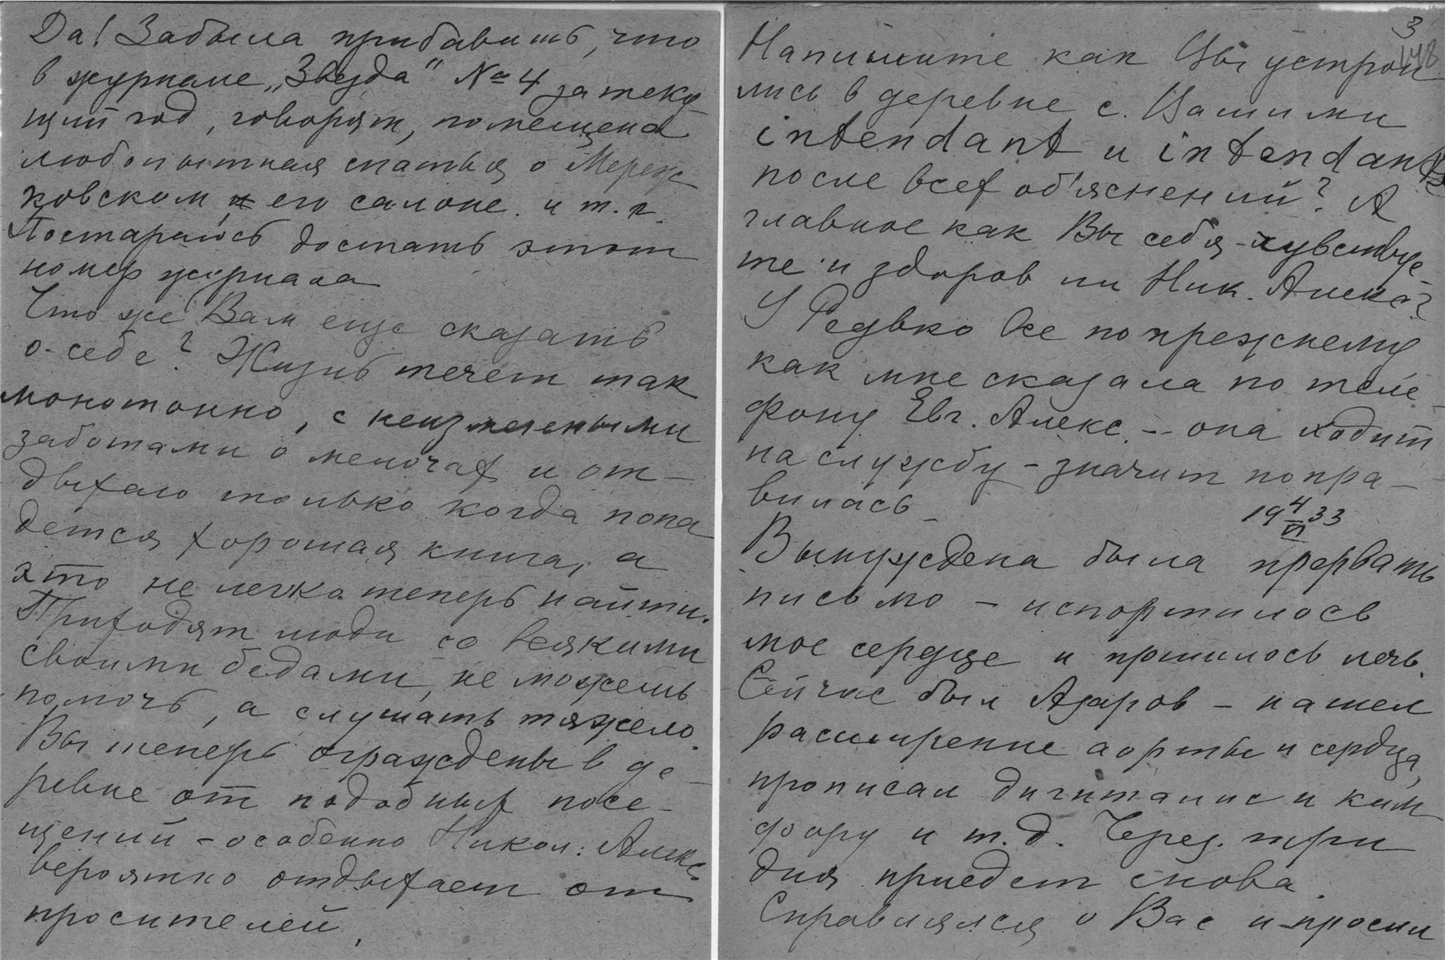 Да! Забыла прибавить, что
в журнале „Звезда" № 4 за теку
щий год, говорят, помещена
любопытная статья о Мереж
ковском, его салоне. и т. п.
Постараюсь достать этот
номер журнала
Что же Вам еще сказать
о себе? Жизнь течет так
монотонно, с неизменными
заботами о мелочах и от-
дыхаю только когда попа
дется хорошая книга, а
это не легко теперь найти.
Приходят люди со всякими
своими бедами, не можешь
помочь, а слушать тяжело.
Вы теперь ограждены в де-
ревне от подобных посе-
щений – особенно Никол. Алекс.
вероятно отдыхает от
просителей.
3
148
Напишите как Вы устрои
лись в деревне с Вашими
intendant и intendante
после всех об'яснений? А
главное как Вы себя чувствуе
те и здоров ли Ник. Алекс.?
У Редько все по прежнему
как мне сказала по теле-
фону Евг. Алекс. – она ходит
на службу – значит попра-
вилась
19 4/VI 33
Вынуждена была прервать
письмо – испортилось
мое сердце и пришлось лечь.
Сейчас был Азаров – нашел
расширение аорты и сердца,
прописал дигиталис и кам
фору и т. д. Через три
дня приедет снова.
Справлялся о Вас и просил